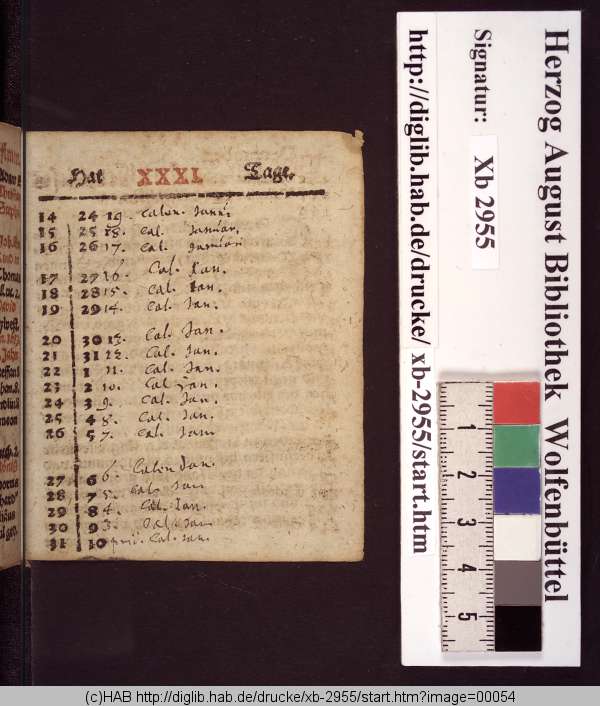 Hat XXXI. Tage.
14 24 19. Calen. Janu.
15 25 18. Cal. Januar.
16 26 17. Cal. Januar
17 27 16. Cal. Jan.
18 28 15. Cal. Jan.
19 29 14. Cal. Jan.
20 30 13. Cal. Jan.
21 31 12. Cal. Jan.
22 1 11. Cal. Jan.
23 2 10. Cal Jan.
24 3 9. Cal. Jan.
25 4 8. Cal. Jan.
26 5 7. Cal. Jan
27 6 6. Calen Jan.
28 7 5. Cal. Jan
29 8 4. Cal. Jan.
30 9 3. Cal. Jan
31 10 prii. Cal. Jan.
Herzog August Bibliothek Wolfenbüttel
Signatur: Xb 2955
http://diglib.hab.de/drucke/ xb-2955/start.htm
1 2 3 4 5
(c)HAB http://diglib.hab.de/drucke/xb-2955/start.htm?image=00054